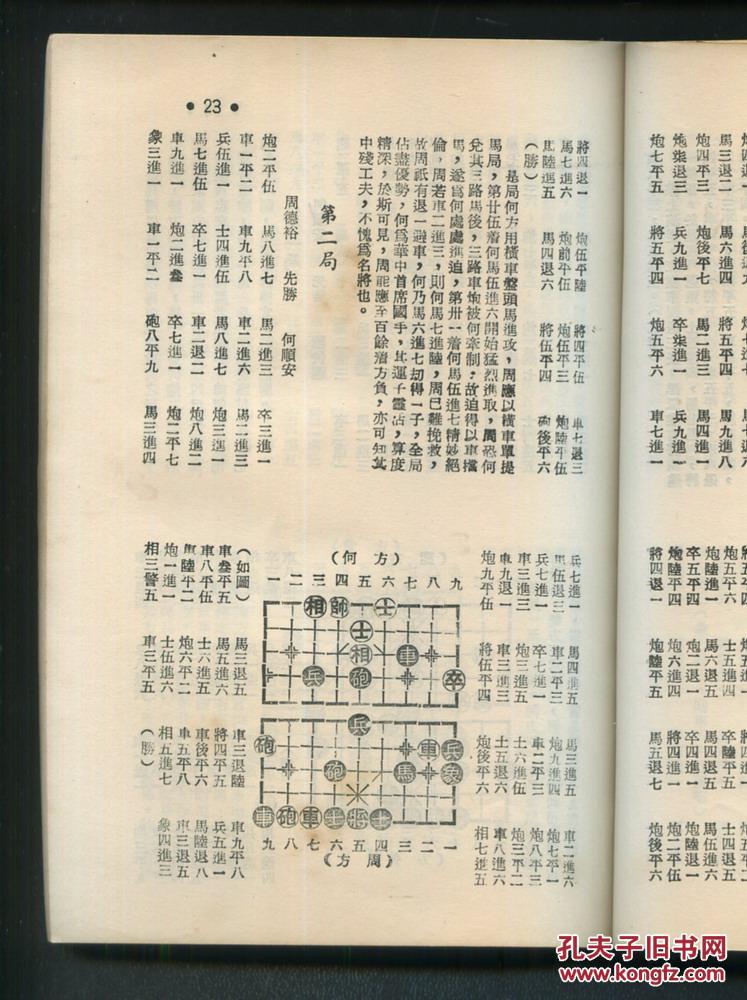 馬三退二 馬六進四 將五平四 馬九進八
炮四平三 炮後平七 馬二進三 馬四進一
炮柒退三 兵九進一 卒柒進一 兵九進一
炮七平五 將五平四 炮五平六 車七進一
炮五平六
炮陸進一 馬四退五 馬伍進六
卒五平四 馬六退五 卒四平五 炮陸退一
炮陸平四 炮六進四 將四平五 炮二平伍
將四退一 炮陸平五 馬五退七 炮後平六
• 23 •
將四退一 炮伍平陸 將四平伍 車七退三
馬七進六 炮前平伍 炮伍平三 炮陸平伍
馬陸進五 馬四退六 將伍平四 砲後平六
(勝)
是局何方用橫車盤頭馬進攻,周應以橫車單提
馬局,第廿伍着何馬伍進六開始猛烈進取,周恐何
兌其三路馬後,三路車炮被何牽制,故迫得以車擋
馬,遂爲何處處進迫,第卅一着何馬伍進七精妙絕
倫,周若車二進三,則何馬七進陸,周已難挽救,
故周祇有退一避車,何乃馬六進七刼得一子,全局
佔盡優勢,何爲華中首席國手,其運子靈活,算度
精深,於斯可見,周能應至百餘着方負,亦可知其
中殘工夫,不愧爲名將也。
第二局
周德裕 先勝 何順安
炮二平伍 馬八進七 馬二進三 卒三進一
車一平二 車九平八 車二進六 馬二進三
兵伍進一 士四進伍 馬八進七 炮三進一
馬七進伍 卒七進一 車二退二 炮八進二
車九進一 炮二進叁 卒七進一 炮二平七
象三進一 車一平二 砲八平九 馬三進四
兵七進一 馬四進五 馬三進五 車二進六
馬伍退三 車二平三 炮九進四 炮七平一
兵七進一 卒七進一 車二平三 炮八平三
車三進三 炮三進五 士六進伍 炮三平二
車九退一 車三進二 士五退六 車八進六
炮九平伍 將伍平四 炮後平六 相七進五
(何方)
一 二 三 四 五 六 七 八 九
相 帥 士
士
相 車
兵 砲 卒
兵
砲 車 兵
砲 馬 象
車 砲 車 士 將 士
九 八 七 六 五 四 三 二 一
(周方)
(如圖) 馬三退五 車三退陸 車九平八
車叁平五 馬五進六 將四平五 兵五進一
車八平伍 士六進五 車後平六 馬陸退八
車陸平二 炮六平二 車五平八 車三退五
炮一進一 士伍進六 相五進七 象四進三
相三警五 車三平五 (勝)
孔夫子旧书网
www.kongfz.com